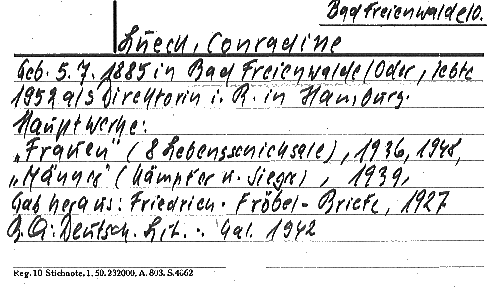 Bad Freienwalde/O.
Lück, Conradine
Geb. 5.7.1885 in Bad Freienwalde/Oder, lebte
1952 als Direktorin i. R. in Hamburg.
Hauptwerke:
„Frauen" (8 Lebensschicksale), 1936, 1948,
„Männer" (Kämpfer u. Sieger), 1939,
Gab heraus: Friedrich-Fröbel-Briefe, 1927
B.Q: Deutsch. Lit.- Kal. 1942
Reg. 10 Stichnote. 1. 50. 232000. A. 803. S. 4662